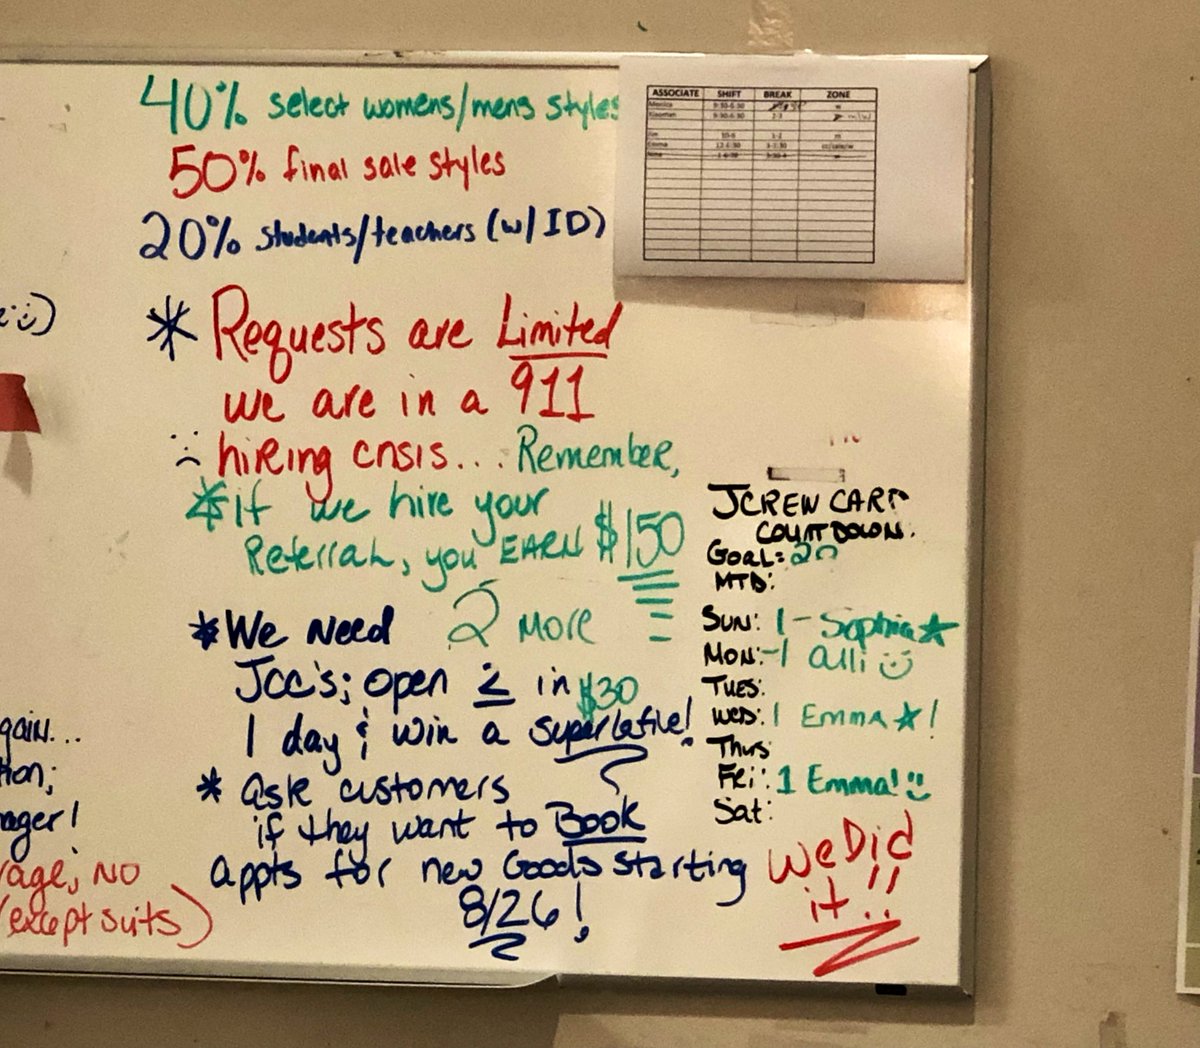 40% select womens/mens styles
50% final sale styles
20% students/teachers (w/ID)
:)
* Requests are Limited
we are in a 911
hiring crisis... Remember,
* if we hire your
Referral, you EARN $150
* We Need 2 more
JCC's; open 2 in $30
1 day & win a superlative!
* ask customers
if they want to Book
appts for new Goods starting
8/26!
gain...
tion;
ager!
age, NO
(except suits)
ASSOCIATE SHIFT BREAK ZONE
Monica 9:30-6:30
9:30-6:30 2-3
Jim 10-6 1-2 m
Emma
JCREW CARD
COUNTDOWN:
GOAL: 20
MTD:
SUN: 1 - Sophia ☆
MON: -1 alli :)
TUES:
WED: 1 EMMA ☆!
Thurs
Fri: 1 Emma! :)
Sat:
We Did
it!!